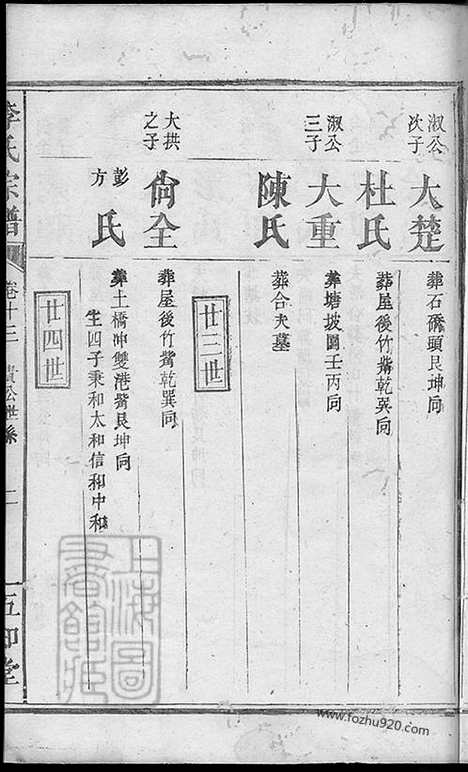 淑公次子
大楚
葬石礄頭艮坤同
杜氏
葬屋後竹觜乾巽同
淑公三子
大重
葬塘坡圓壬丙同
陳氏
葬合夫墓
廿三世
大拱之子
尙全
葬屋後竹觜乾巽同
彭方氏
葬土橋冲雙港觜艮坤同
生四子秉和太和信和中和
廿四世
李氏宗譜
卷十三
世系
二
五知堂
上海圖書館藏
www.fozhu920.com